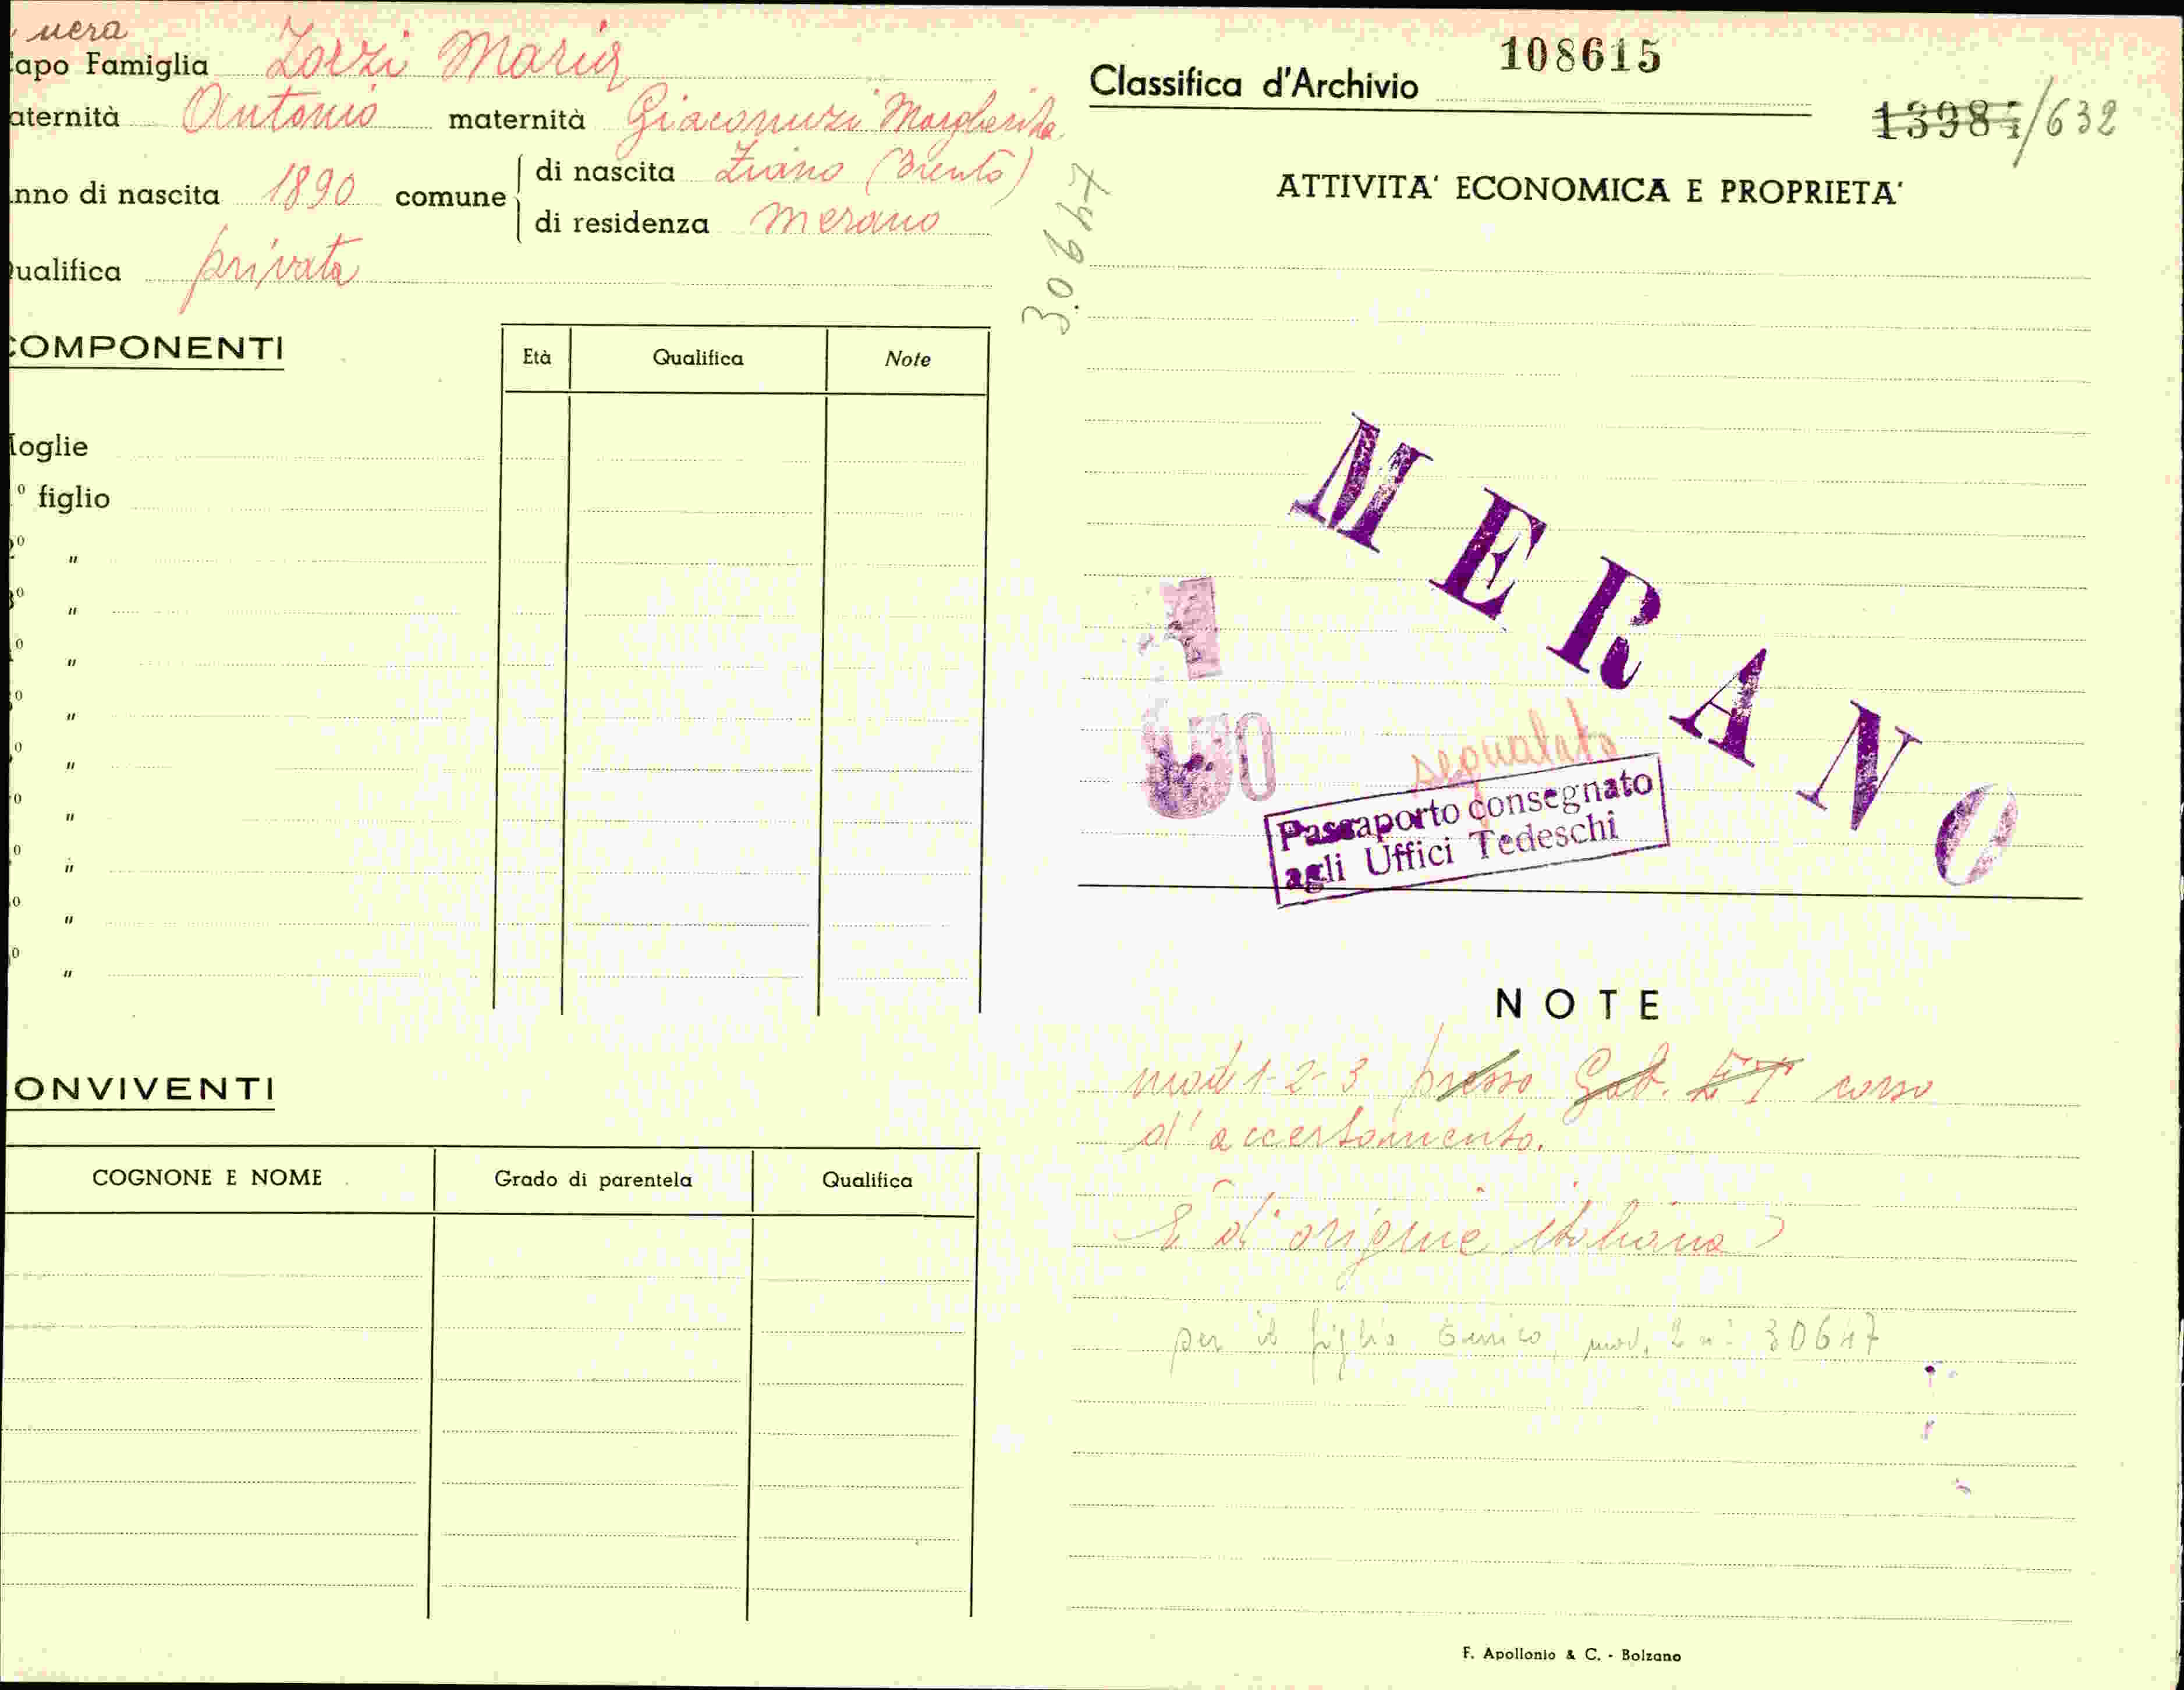 nera
apo Famiglia Zorzi Maria
aternità Antonio maternità Giacomuzi Margherita
nno di nascita 1890 comune di nascita Ziano (Trento)
di residenza Merano
ualifica privata
COMPONENTI
Età Qualifica Note
oglie
º figlio
º "
º "
º "
º "
º "
º "
º "
º "
º "
ONVIVENTI
COGNONE E NOME Grado di parentela Qualifica
30647
Classifica d'Archivio 108615
/632
ATTIVITA' ECONOMICA E PROPRIETA'
MERANO
segnalato
Passaporto consegnato
agli Uffici Tedeschi
NOTE
mod 1-2-3 presso Gab. corso
d'accertamento.
È di origine italiana
per il figlio Enrico, mod. 2 n. 30647
F. Apollonio & C. - Bolzano